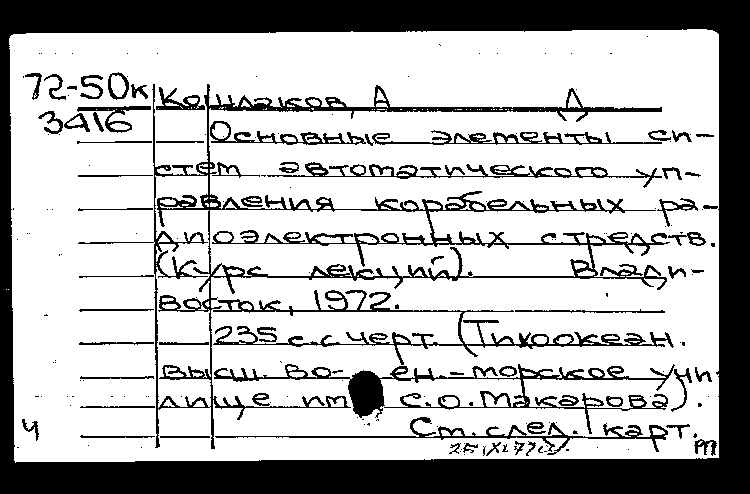 72-50к Кошлаков, А Д
3416 Основные элементы си-
стем автоматического уп-
равления корабельных ра-
диоэлектронных средств.
(Курс лекций). Влади-
восток, 1972.
235 с. с черт. (Тихоокеан.
высш. во- ен.-морское учи-
лище им С.О. Макарова).
Ч Ст. след. карт.
РП